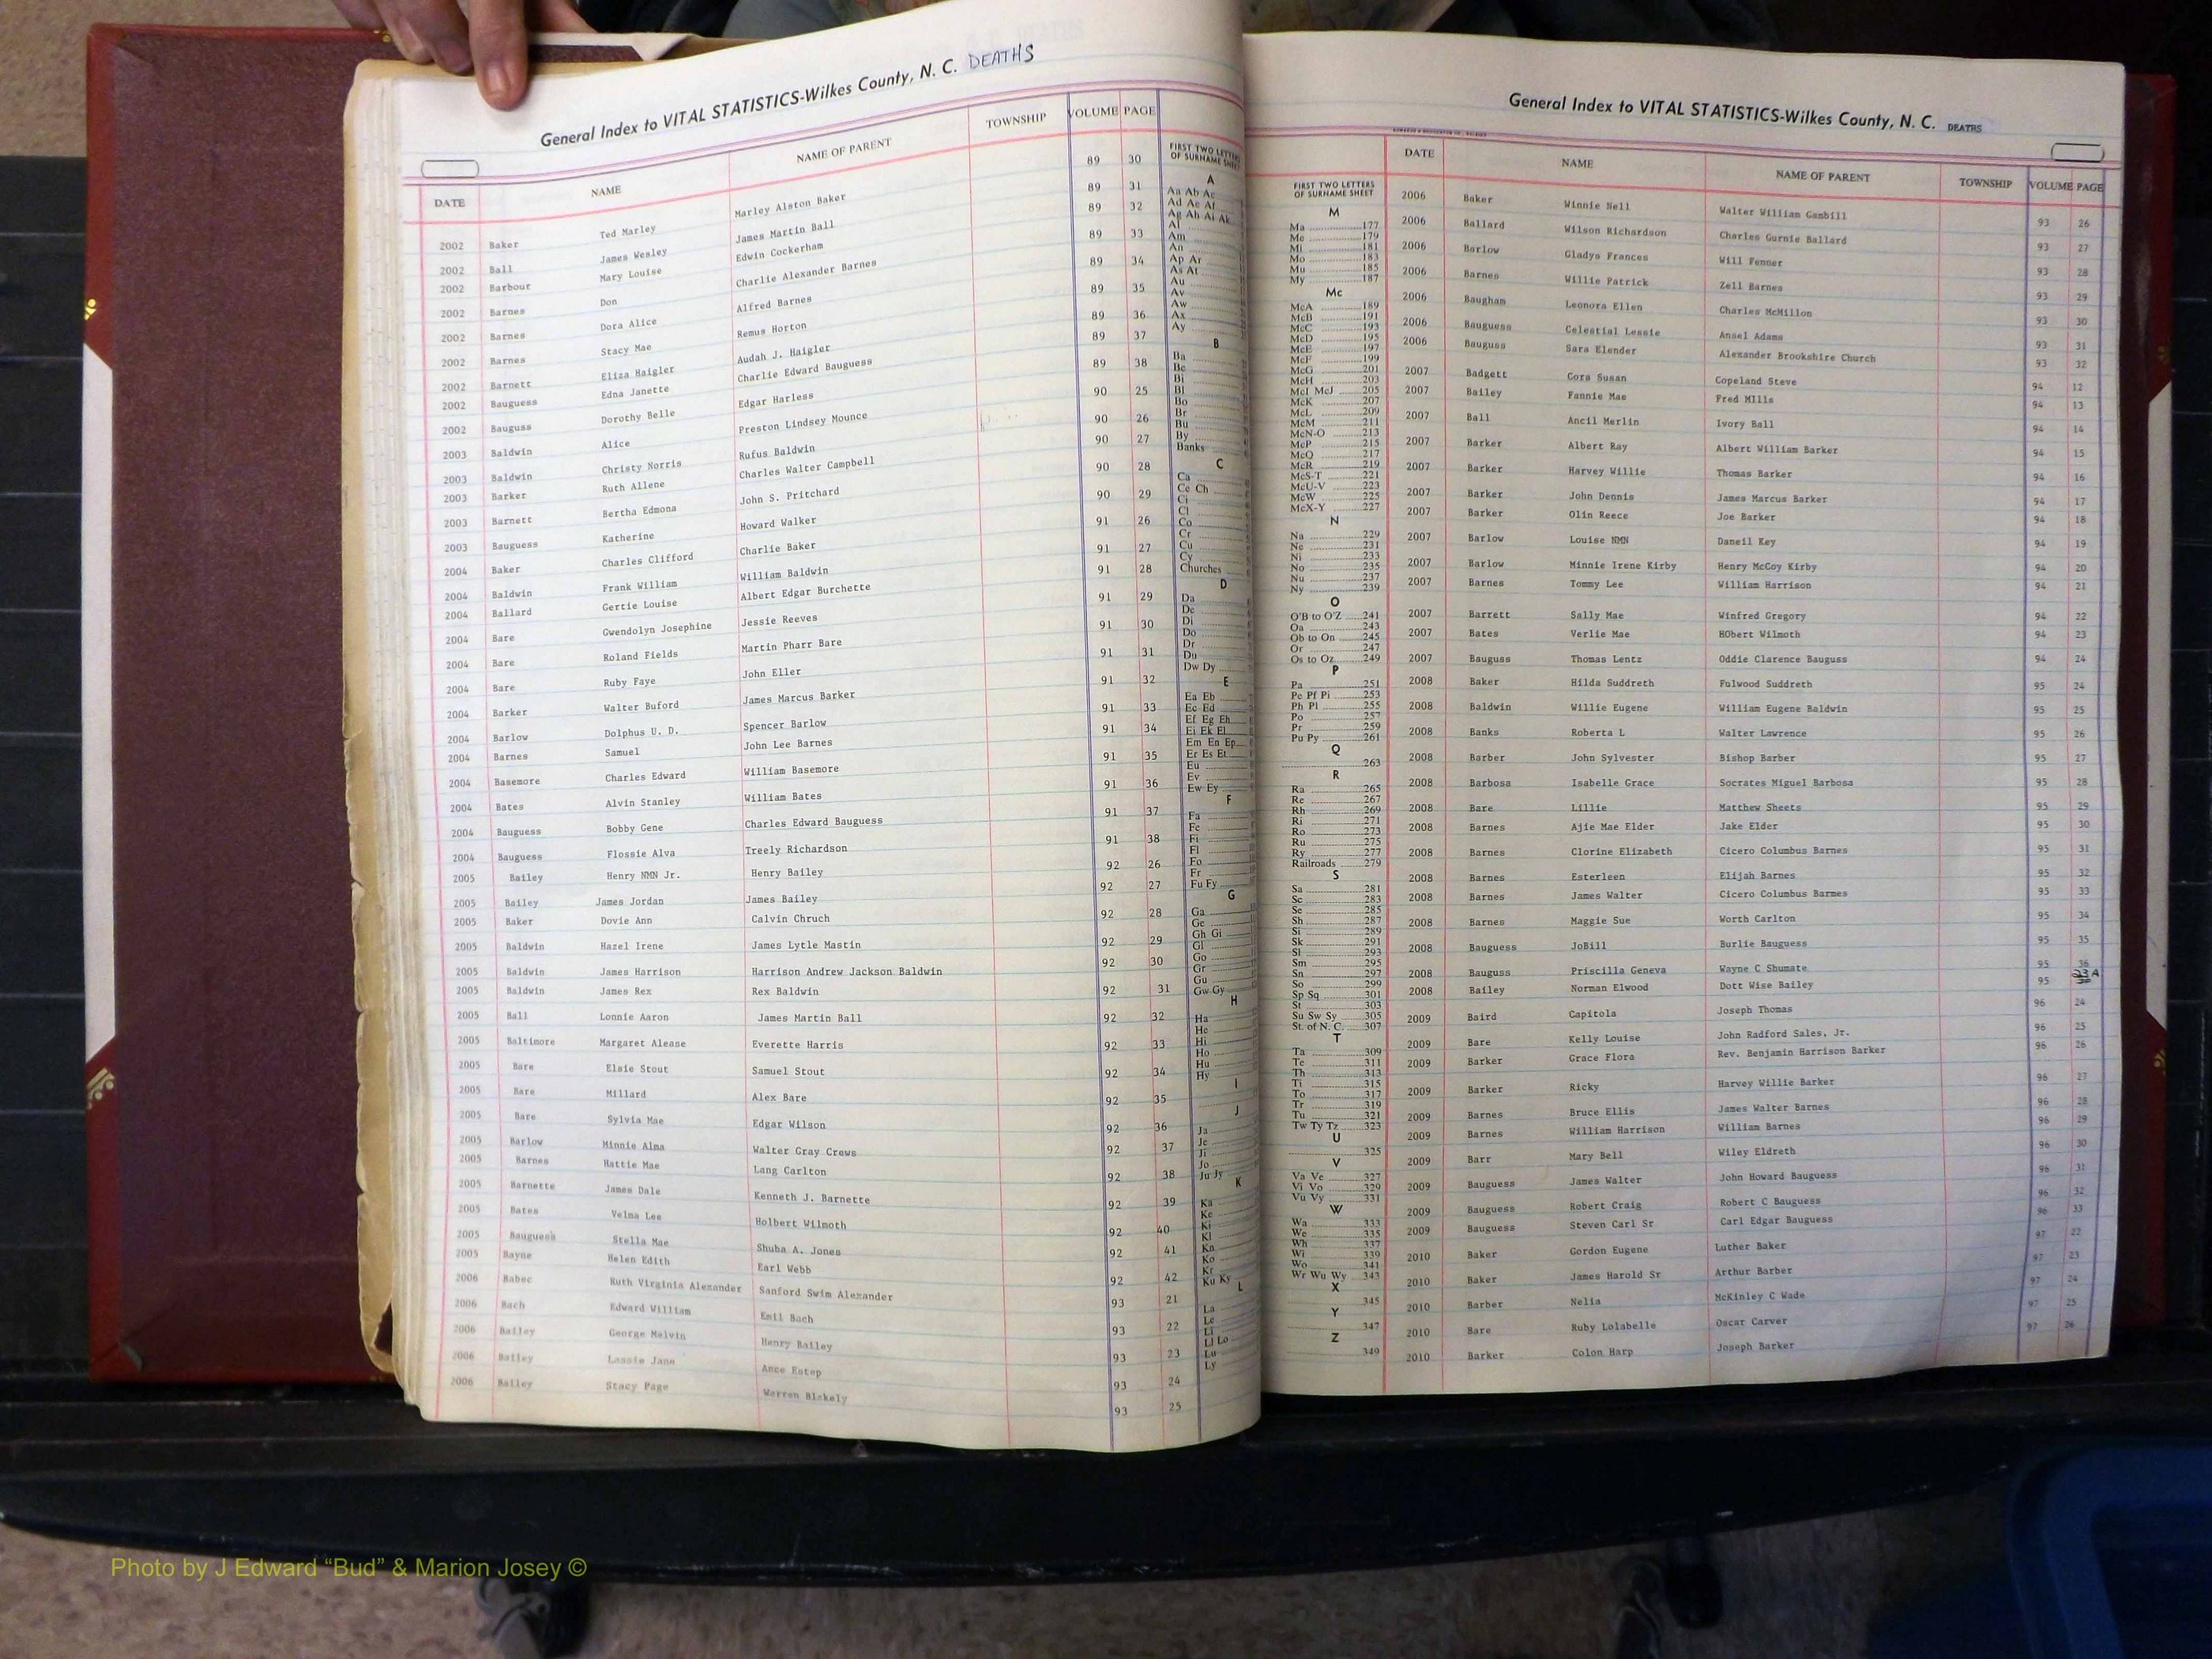 General Index to VITAL STATISTICS-Wilkes County, N. C. DEATHS
DATE NAME NAME OF PARENT TOWNSHIP VOLUME PAGE
2002 Baker Ted Marley Marley Alston Baker 89 30
2002 Ball James Wesley James Martin Ball 89 31
2002 Barbour Mary Louise Edwin Cockerham 89 32
2002 Barnes Don Charlie Alexander Barnes 89 33
2002 Barnes Dora Alice Alfred Barnes 89 34
2002 Barnes Stacy Mae Remus Horton 89 35
2002 Barnett Eliza Haigler Audah J. Haigler 89 36
2002 Bauguess Edna Janette Charlie Edward Bauguess 89 37
2002 Bauguss Dorothy Belle Edgar Harless 89 38
2003 Baldwin Alice Preston Lindsey Mounce 90 25
2003 Baldwin Christy Norris Rufus Baldwin 90 26
2003 Barker Ruth Allene Charles Walter Campbell 90 27
2003 Barnett Bertha Edmona John S. Pritchard 90 28
2003 Bauguess Katherine Howard Walker 90 29
2004 Baker Charles Clifford Charlie Baker 91 26
2004 Baldwin Frank William William Baldwin 91 27
2004 Ballard Gertie Louise Albert Edgar Burchette 91 28
2004 Bare Gwendolyn Josephine Jessie Reeves 91 29
2004 Bare Roland Fields Martin Pharr Bare 91 30
2004 Bare Ruby Faye John Eller 91 31
2004 Barker Walter Buford James Marcus Barker 91 32
2004 Barlow Dolphus U. D. Spencer Barlow 91 33
2004 Barnes Samuel John Lee Barnes 91 34
2004 Basemore Charles Edward William Basemore 91 35
2004 Bates Alvin Stanley William Bates 91 36
2004 Bauguess Bobby Gene Charles Edward Bauguess 91 37
2004 Bauguess Flossie Alva Treely Richardson 91 38
2005 Bailey Henry NMN Jr. Henry Bailey 92 26
2005 Bailey James Jordan James Bailey 92 27
2005 Baker Dovie Ann Calvin Chruch 92 28
2005 Baldwin Hazel Irene James Lytle Mastin 92 29
2005 Baldwin James Harrison Harrison Andrew Jackson Baldwin 92 30
2005 Baldwin James Rex Rex Baldwin 92 31
2005 Ball Lonnie Aaron James Martin Ball 92 32
2005 Baltimore Margaret Alease Everette Harris 92 33
2005 Bare Elsie Stout Samuel Stout 92 34
2005 Bare Millard Alex Bare 92 35
2005 Bare Sylvia Mae Edgar Wilson 92 36
2005 Barlow Minnie Alma Walter Gray Crews 92 37
2005 Barnes Hattie Mae Lang Carlton 92 38
2005 Barnette James Dale Kenneth J. Barnette 92 39
2005 Bates Velma Lee Holbert Wilmoth 92 40
2005 Bauguess Stella Mae Shuba A. Jones 92 41
2005 Bayne Helen Edith Earl Webb 92 42
2006 Babec Ruth Virginia Alexander Sanford Swim Alexander 93 21
2006 Bach Edward William Emil Bach 93 22
2006 Bailey George Melvin Henry Bailey 93 23
2006 Bailey Lassie Jane Ance Estep 93 24
2006 Bailey Stacy Page Warren Blakely 93 25
FIRST TWO LETTERS
OF SURNAME SHEET
A
Aa Ab Ac
Ad Ae Af
Ag Ah Ai Ak
Al
Am
An
Ap Ar
As At
Au
Av
Aw
Ax
Ay
B
Ba
Be
Bi
Bl
Bo
Br
Bu
By
Banks
C
Ca
Ce Ch
Ci
Cl
Co
Cr
Cu
Cy
Churches
D
Da
De
Di
Do
Dr
Du
Dw Dy
E
Ea Eb
Ec Ed
Ef Eg Eh
Ei Ek El
Em En Ep
Er Es Et
Eu
Ev
Ew Ey
F
Fa
Fe
Fi
Fl
Fo
Fr
Fu Fy
G
Ga
Ge
Gh Gi
Gl
Go
Gr
Gu
Gw Gy
H
Ha
He
Hi
Ho
Hu
Hy
I
J
Ja
Je
Ji
Jo
Ju Jy
K
Ka
Ke
Ki
Kl
Kn
Ko
Kr
Ku Ky
L
La
Le
Li
Ll Lo
Lu
Ly
FIRST TWO LETTERS
OF SURNAME SHEET
M
Ma 177
Me 179
Mi 181
Mo 183
Mu 185
My 187
Mc
McA 189
McB 191
McC 193
McD 195
McE 197
McF 199
McG 201
McH 203
McI McJ 205
McK 207
McL 209
McM 211
McN-O 213
McP 215
McQ 217
McR 219
McS-T 221
McU-V 223
McW 225
McX-Y 227
N
Na 229
Ne 231
Ni 233
No 235
Nu 237
Ny 239
O
O'B to O'Z 241
Oa 243
Ob to On 245
Or 247
Os to Oz 249
P
Pa 251
Pe Pf Pi 253
Ph Pl 255
Po 257
Pr 259
Pu Py 261
Q
263
R
Ra 265
Re 267
Rh 269
Ri 271
Ro 273
Ru 275
Ry 277
Railroads 279
S
Sa 281
Sc 283
Se 285
Sh 287
Si 289
Sk 291
Sl 293
Sm 295
Sn 297
So 299
Sp Sq 301
St 303
Su Sw Sy 305
St. of N. C. 307
T
Ta 309
Te 311
Th 313
Ti 315
To 317
Tr 319
Tu 321
Tw Ty Tz 323
U
325
V
Va Ve 327
Vi Vo 329
Vu Vy 331
W
Wa 333
We 335
Wh 337
Wi 339
Wo 341
Wr Wu Wy 343
X
345
Y
347
Z
349
General Index to VITAL STATISTICS-Wilkes County, N. C. DEATHS
DATE NAME NAME OF PARENT TOWNSHIP VOLUME PAGE
2006 Baker Winnie Nell Walter William Gambill 93 26
2006 Ballard Wilson Richardson Charles Gurnie Ballard 93 27
2006 Barlow Gladys Frances Will Fenner 93 28
2006 Barnes Willie Patrick Zell Barnes 93 29
2006 Baugham Leonora Ellen Charles McMillon 93 30
2006 Bauguess Celestial Lessie Ansel Adams 93 31
2006 Bauguss Sara Elender Alexander Brookshire Church 93 32
2007 Badgett Cora Susan Copeland Steve 94 12
2007 Bailey Fannie Mae Fred MIlls 94 13
2007 Ball Ancil Merlin Ivory Ball 94 14
2007 Barker Albert Ray Albert William Barker 94 15
2007 Barker Harvey Willie Thomas Barker 94 16
2007 Barker John Dennis James Marcus Barker 94 17
2007 Barker Olin Reece Joe Barker 94 18
2007 Barlow Louise NMN Daneil Key 94 19
2007 Barlow Minnie Irene Kirby Henry McCoy Kirby 94 20
2007 Barnes Tommy Lee William Harrison 94 21
2007 Barrett Sally Mae Winfred Gregory 94 22
2007 Bates Verlie Mae HObert Wilmoth 94 23
2007 Bauguss Thomas Lentz Oddie Clarence Bauguss 94 24
2008 Baker Hilda Suddreth Fulwood Suddreth 95 24
2008 Baldwin Willie Eugene William Eugene Baldwin 95 25
2008 Banks Roberta L Walter Lawrence 95 26
2008 Barber John Sylvester Bishop Barber 95 27
2008 Barbosa Isabelle Grace Socrates Miguel Barbosa 95 28
2008 Bare Lillie Matthew Sheets 95 29
2008 Barnes Ajie Mae Elder Jake Elder 95 30
2008 Barnes Clorine Elizabeth Cicero Columbus Barnes 95 31
2008 Barnes Esterleen Elijah Barnes 95 32
2008 Barnes James Walter Cicero Columbus Barmes 95 33
2008 Barnes Maggie Sue Worth Carlton 95 34
2008 Bauguess JoBill Burlie Bauguess 95 35
2008 Bauguss Priscilla Geneva Wayne C Shumate 95 36
2008 Bailey Norman Elwood Dott Wise Bailey 95 23A
2009 Baird Capitola Joseph Thomas 96 24
2009 Bare Kelly Louise John Radford Sales, Jr. 96 25
2009 Barker Grace Flora Rev. Benjamin Harrison Barker 96 26
2009 Barker Ricky Harvey Willie Barker 96 27
2009 Barnes Bruce Ellis James Walter Barnes 96 28
2009 Barnes William Harrison William Barnes 96 29
2009 Barr Mary Bell Wiley Eldreth 96 30
2009 Bauguess James Walter John Howard Bauguess 96 31
2009 Bauguess Robert Craig Robert C Bauguess 96 32
2009 Bauguess Steven Carl Sr Carl Edgar Bauguess 96 33
2010 Baker Gordon Eugene Luther Baker 97 22
2010 Baker James Harold Sr Arthur Barber 97 23
2010 Barber Nelia McKinley C Wade 97 24
2010 Bare Ruby Lolabelle Oscar Carver 97 25
2010 Barker Colon Harp Joseph Barker 97 26
Photo by J Edward “Bud” & Marion Josey ©